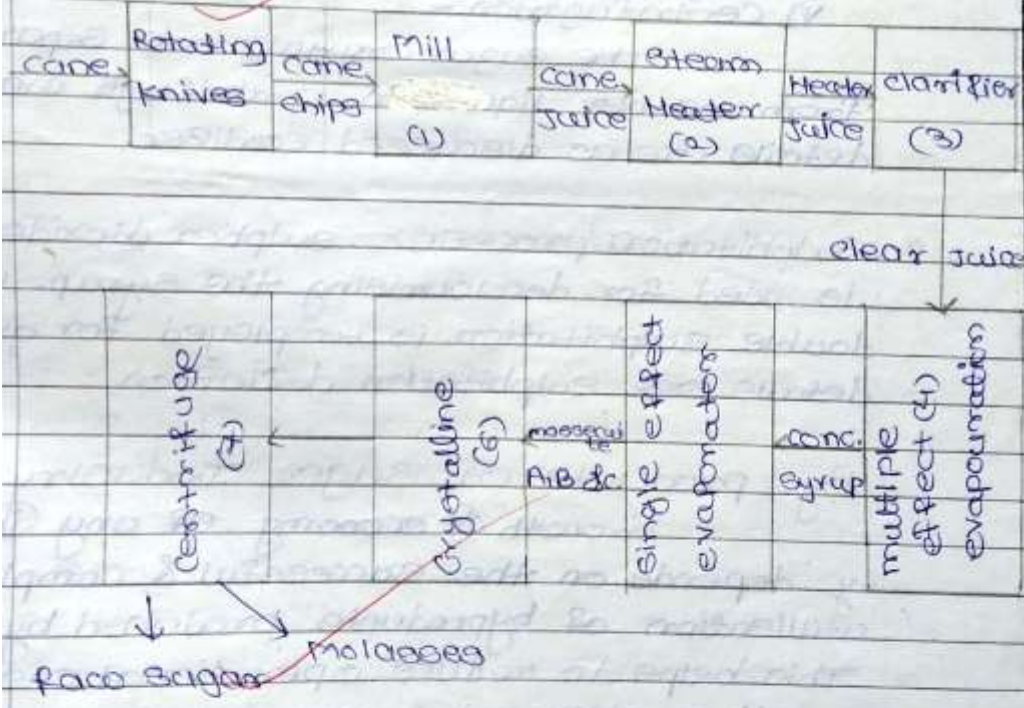 cane
Rotating
Knives
cane
chips
Mill
(1)
cane
Juice
Steam
Heater
(2)
Heater
Juice
clarifier
(3)
clear Juice
multiple
effect (4)
evapouration
conc.
syrup
Single effect
evaporation
massecuite
A,B &C
Crystalline
(6)
Centrifuge
(7)
Raco Sugar
Molasses